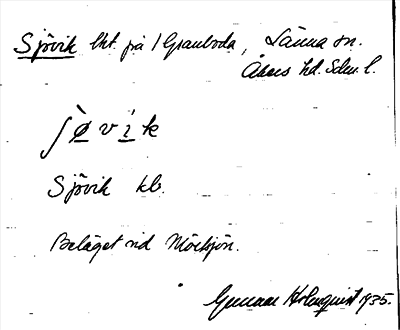 Sjövik lht. på 1 Granboda, Länna sn.
Åkers hd. Sdm. l.
ʃø̀vík
Sjövik kb.
Beläget vid Mörtsjön.
Gunnar Holmquist 1935.